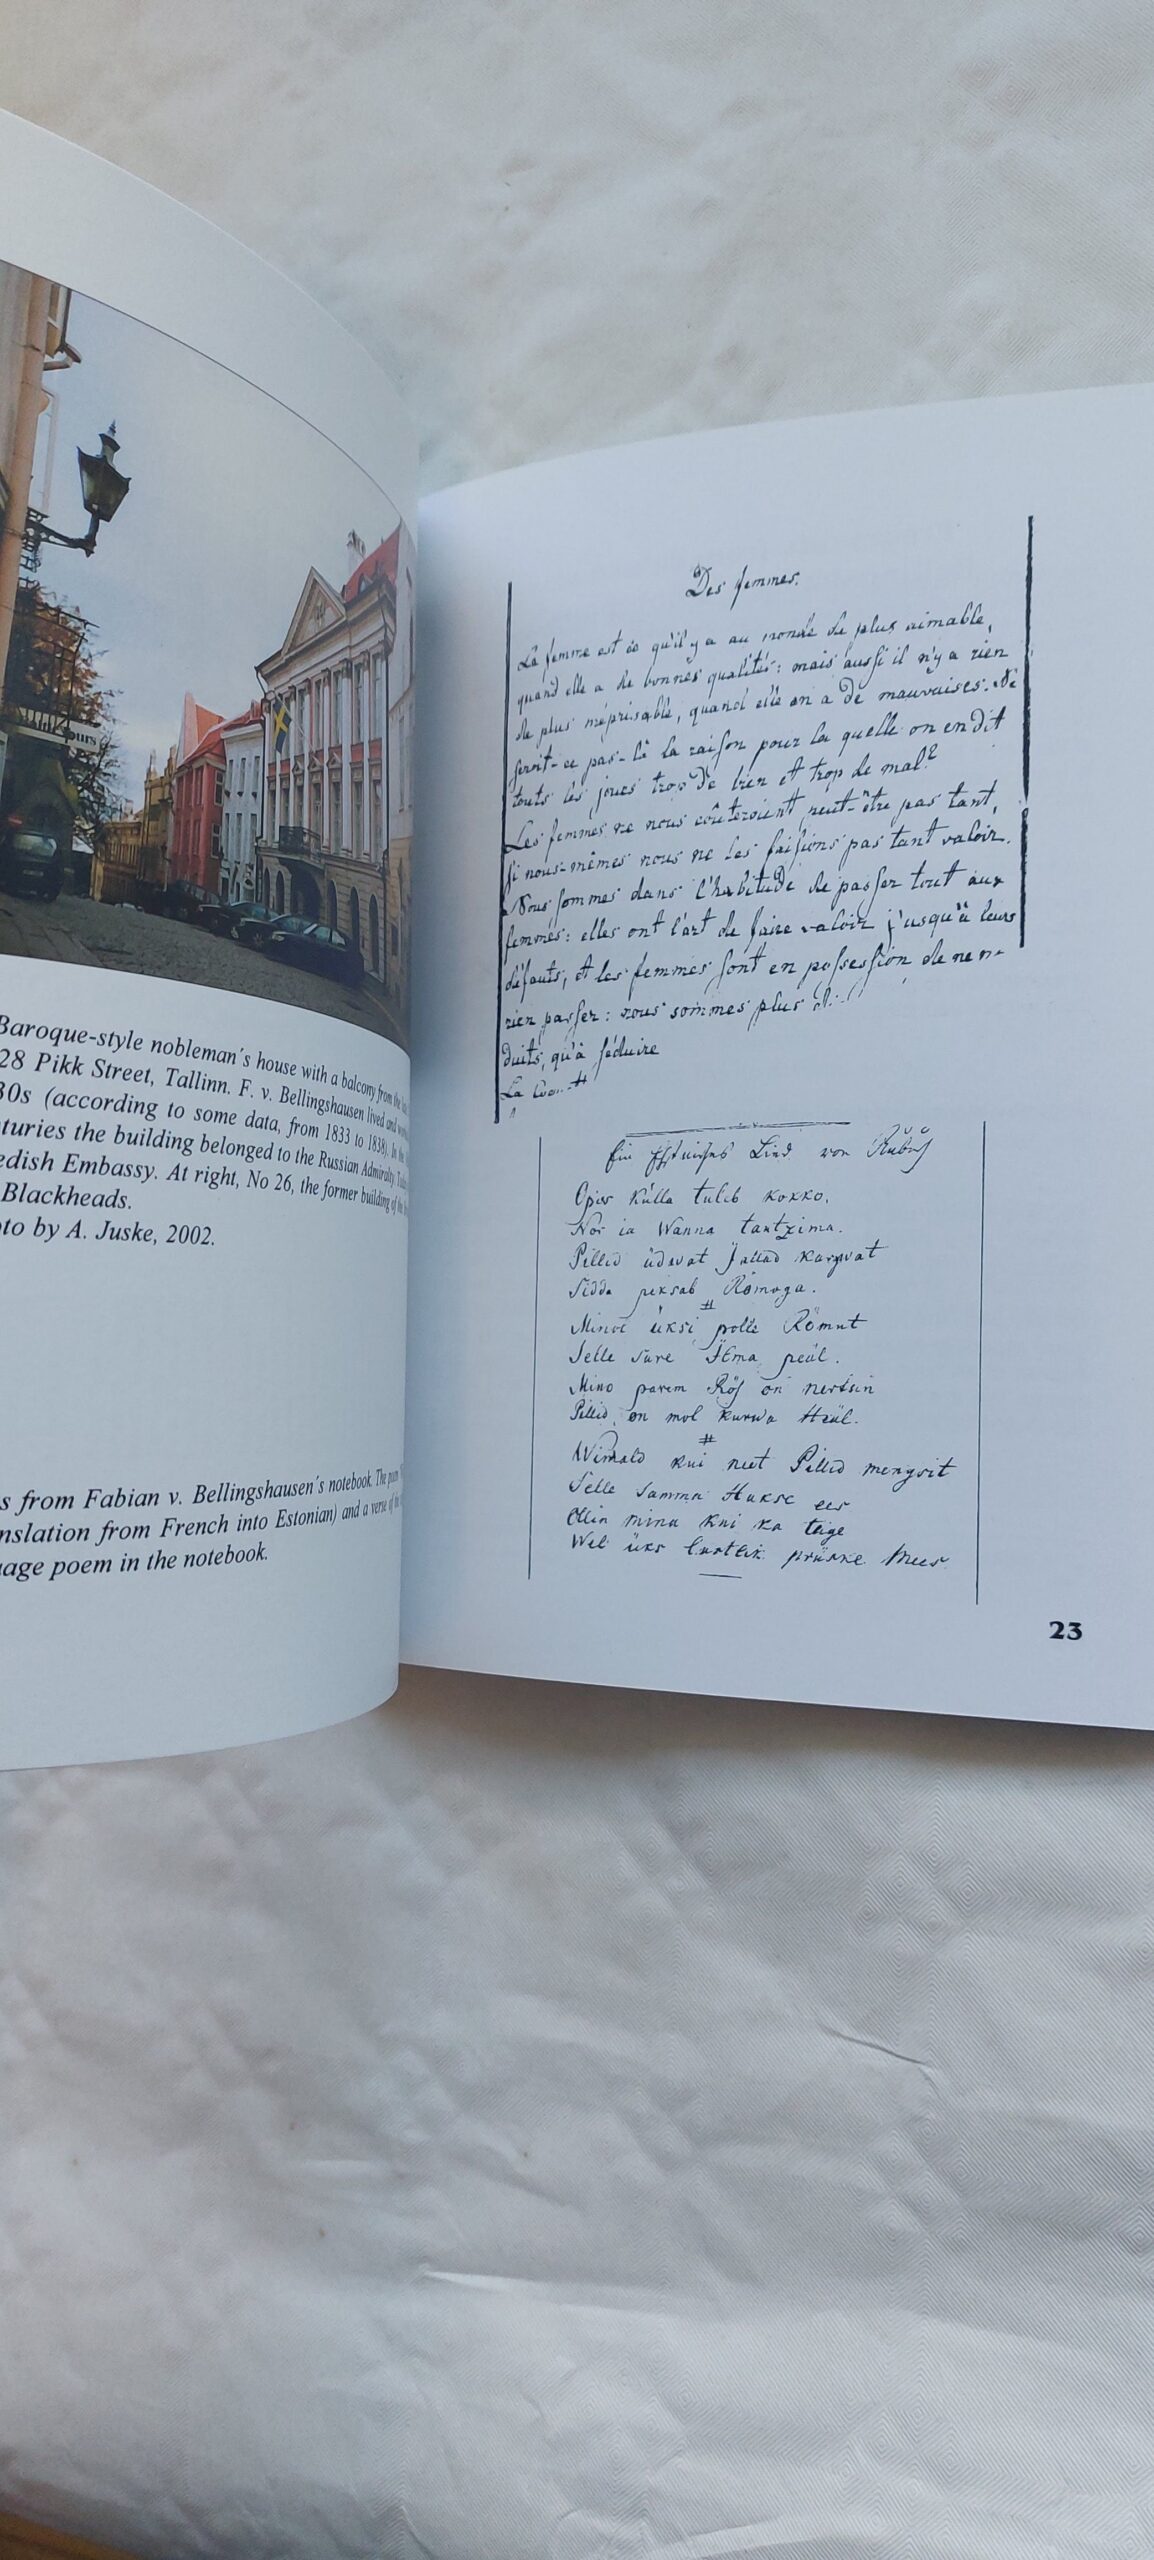 ours
Baroque-style nobleman´s house with a balcony from the
28 Pikk Street, Tallinn. F. v. Bellingshausen lived and
30s (according to some data, from 1833 to 1838). In the
turies the building belonged to the Russian Admiralty. Today
edish Embassy. At right, No 26, the former building of the
Blackheads.
to by A. Juske, 2002.
s from Fabian v. Bellingshausen´s notebook. The poem
nslation from French into Estonian) and a verse of the
uage poem in the notebook.
Des femmes.
La femme est ce qu'il y a au monde de plus aimable,
quand elle a de bonnes qualités: mais aussi il n'y a rien
de plus méprisable, quand elle en a de mauvaises. Ne
seroit-ce pas-là la raison pour la quelle on en dit
touts les jours trop de bien et trop de mal?
Les femmes ne nous coûteroient peut-être pas tant,
si nous-mêmes nous ne les faisions pas tant valoir.
Nous sommes dans l'habitude de passer tout aux
femmes: elles ont l'art de faire valoir jusqu'à leurs
défauts, et les femmes sont en possession de ne
rien passer: nous sommes plus
duits, qu'à séduire
La
Ein Lied von
Opis külla tuleb kokko.
Nor ia Wanna tantzima.
Pillid üdavat Jallad kargvat
Sidda peksab Römoga.
#
Minol üksi polle Römut
Selle sure Ilma peäl.
Mino parem Röf on nertsin
Pillid on mol kurwa Heäl.
#
Wimald kui neet Pillid mengvit
Selle Samma Hukse ees
Ollin minu kui ka teige
Wel üks lustlik prüske Mees.
23